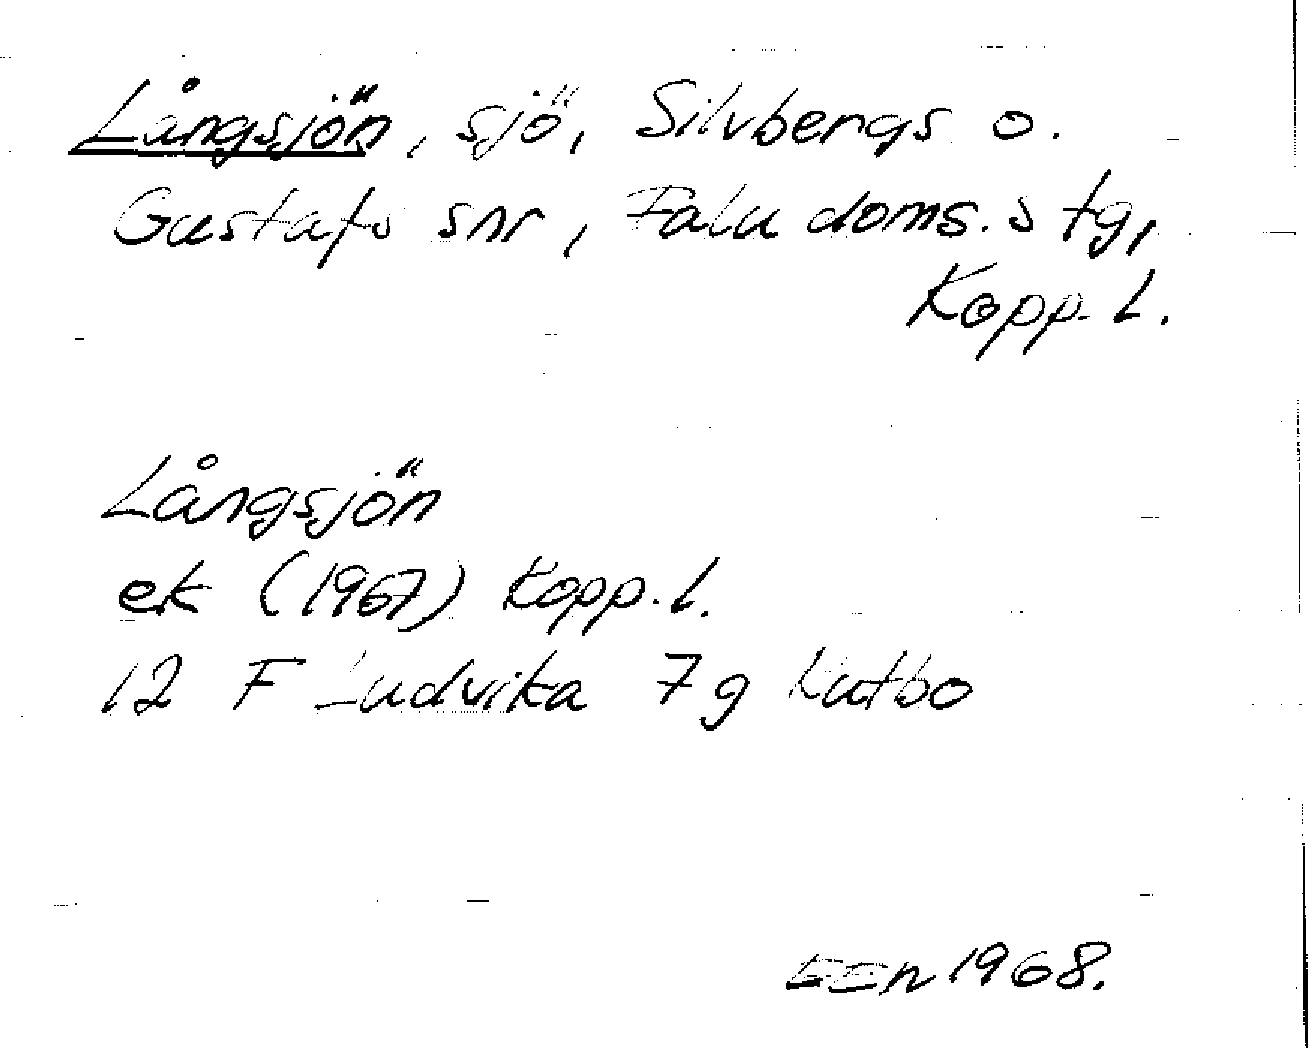 Långsjön, sjö, Silvbergs o.
Gustafs snr, Falu doms. s tg,
Kopp. l.
Långsjön
ek (1967) Kopp. l.
12 F Ludvika 7 g Kutbo
1968.